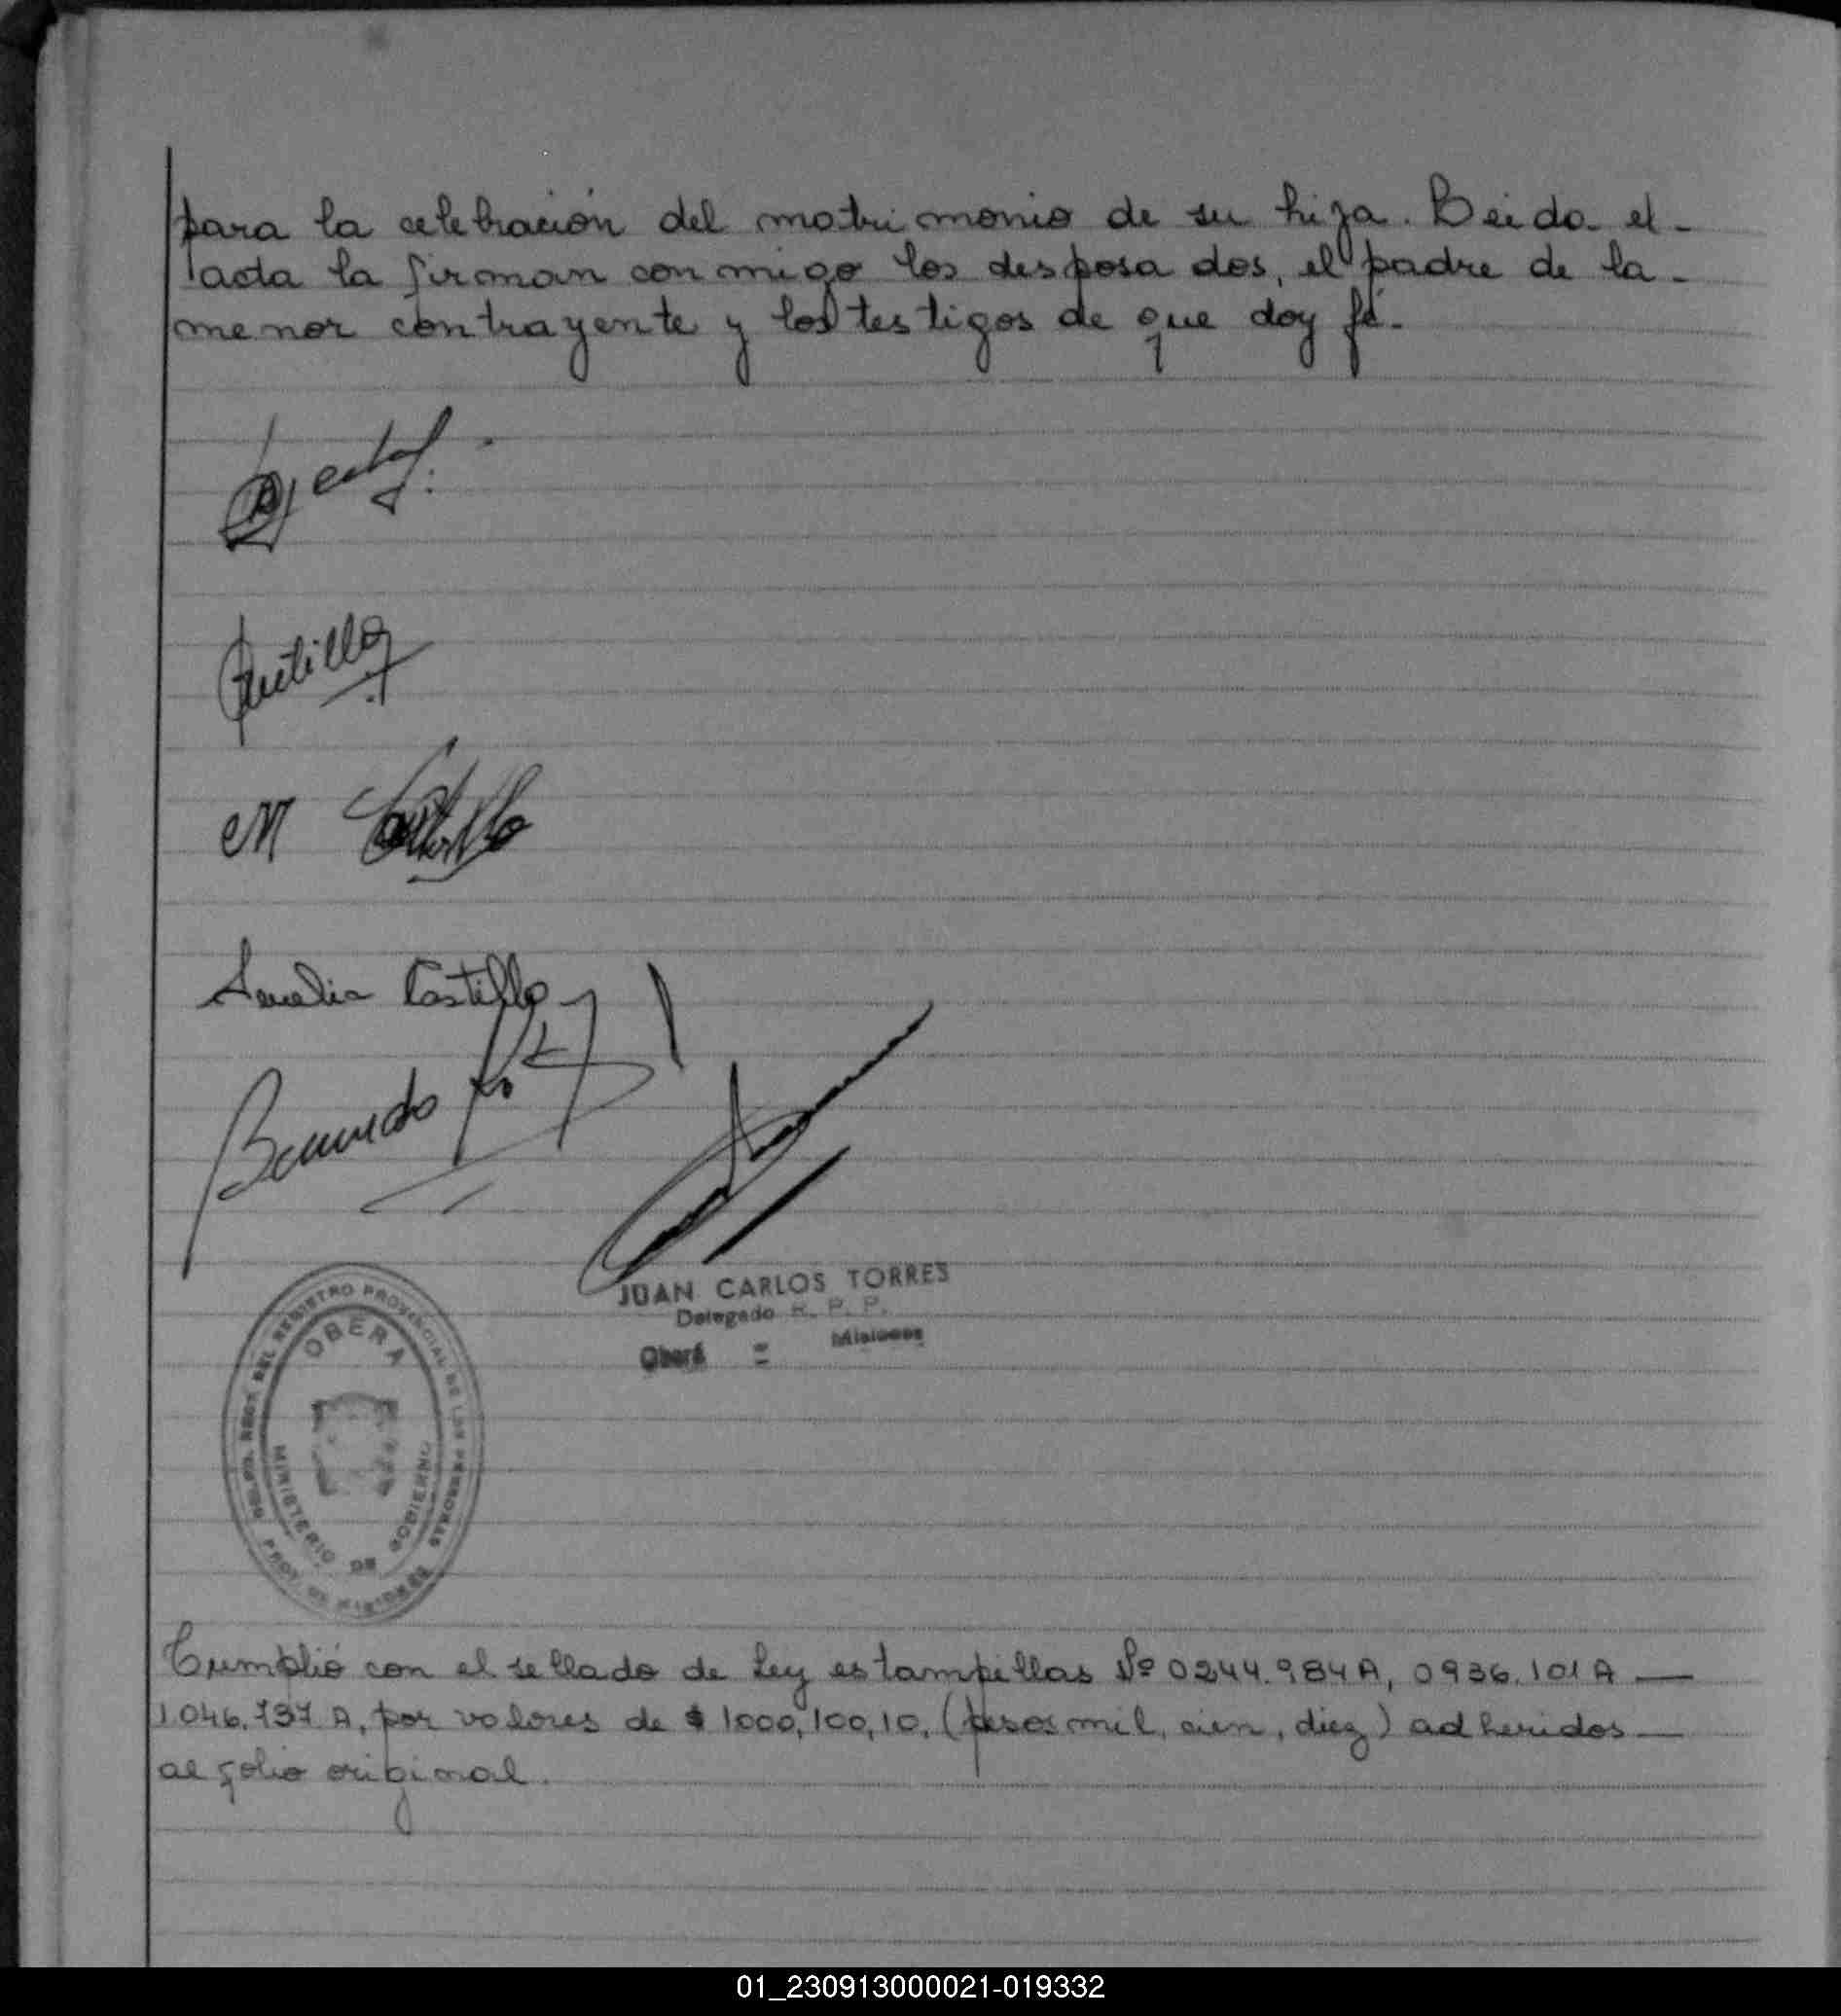 para la celebración del matrimonio de su hija. Leida el -
acta la firman conmigo los desposados, el padre de la -
menor contrayente y los testigos de que doy fé.-
M Castillo
Amelia Castillo
JUAN CARLOS TORRES
Delegado R. P. P.
Oberá - Misiones
DEL REGISTRO PROVINCIAL DE LAS PERSONAS
OBERA
MINISTERIO DE GOBIERNO
PROV. DE MISIONES
Cumplió con el sellado de Ley estampillas Nº 0244.984A, 0936.101A —
1.046.737 A, por valores de $ 1000,100,10, (pesos mil, cien, diez) adheridos —
al folio original.
01_230913000021-019332